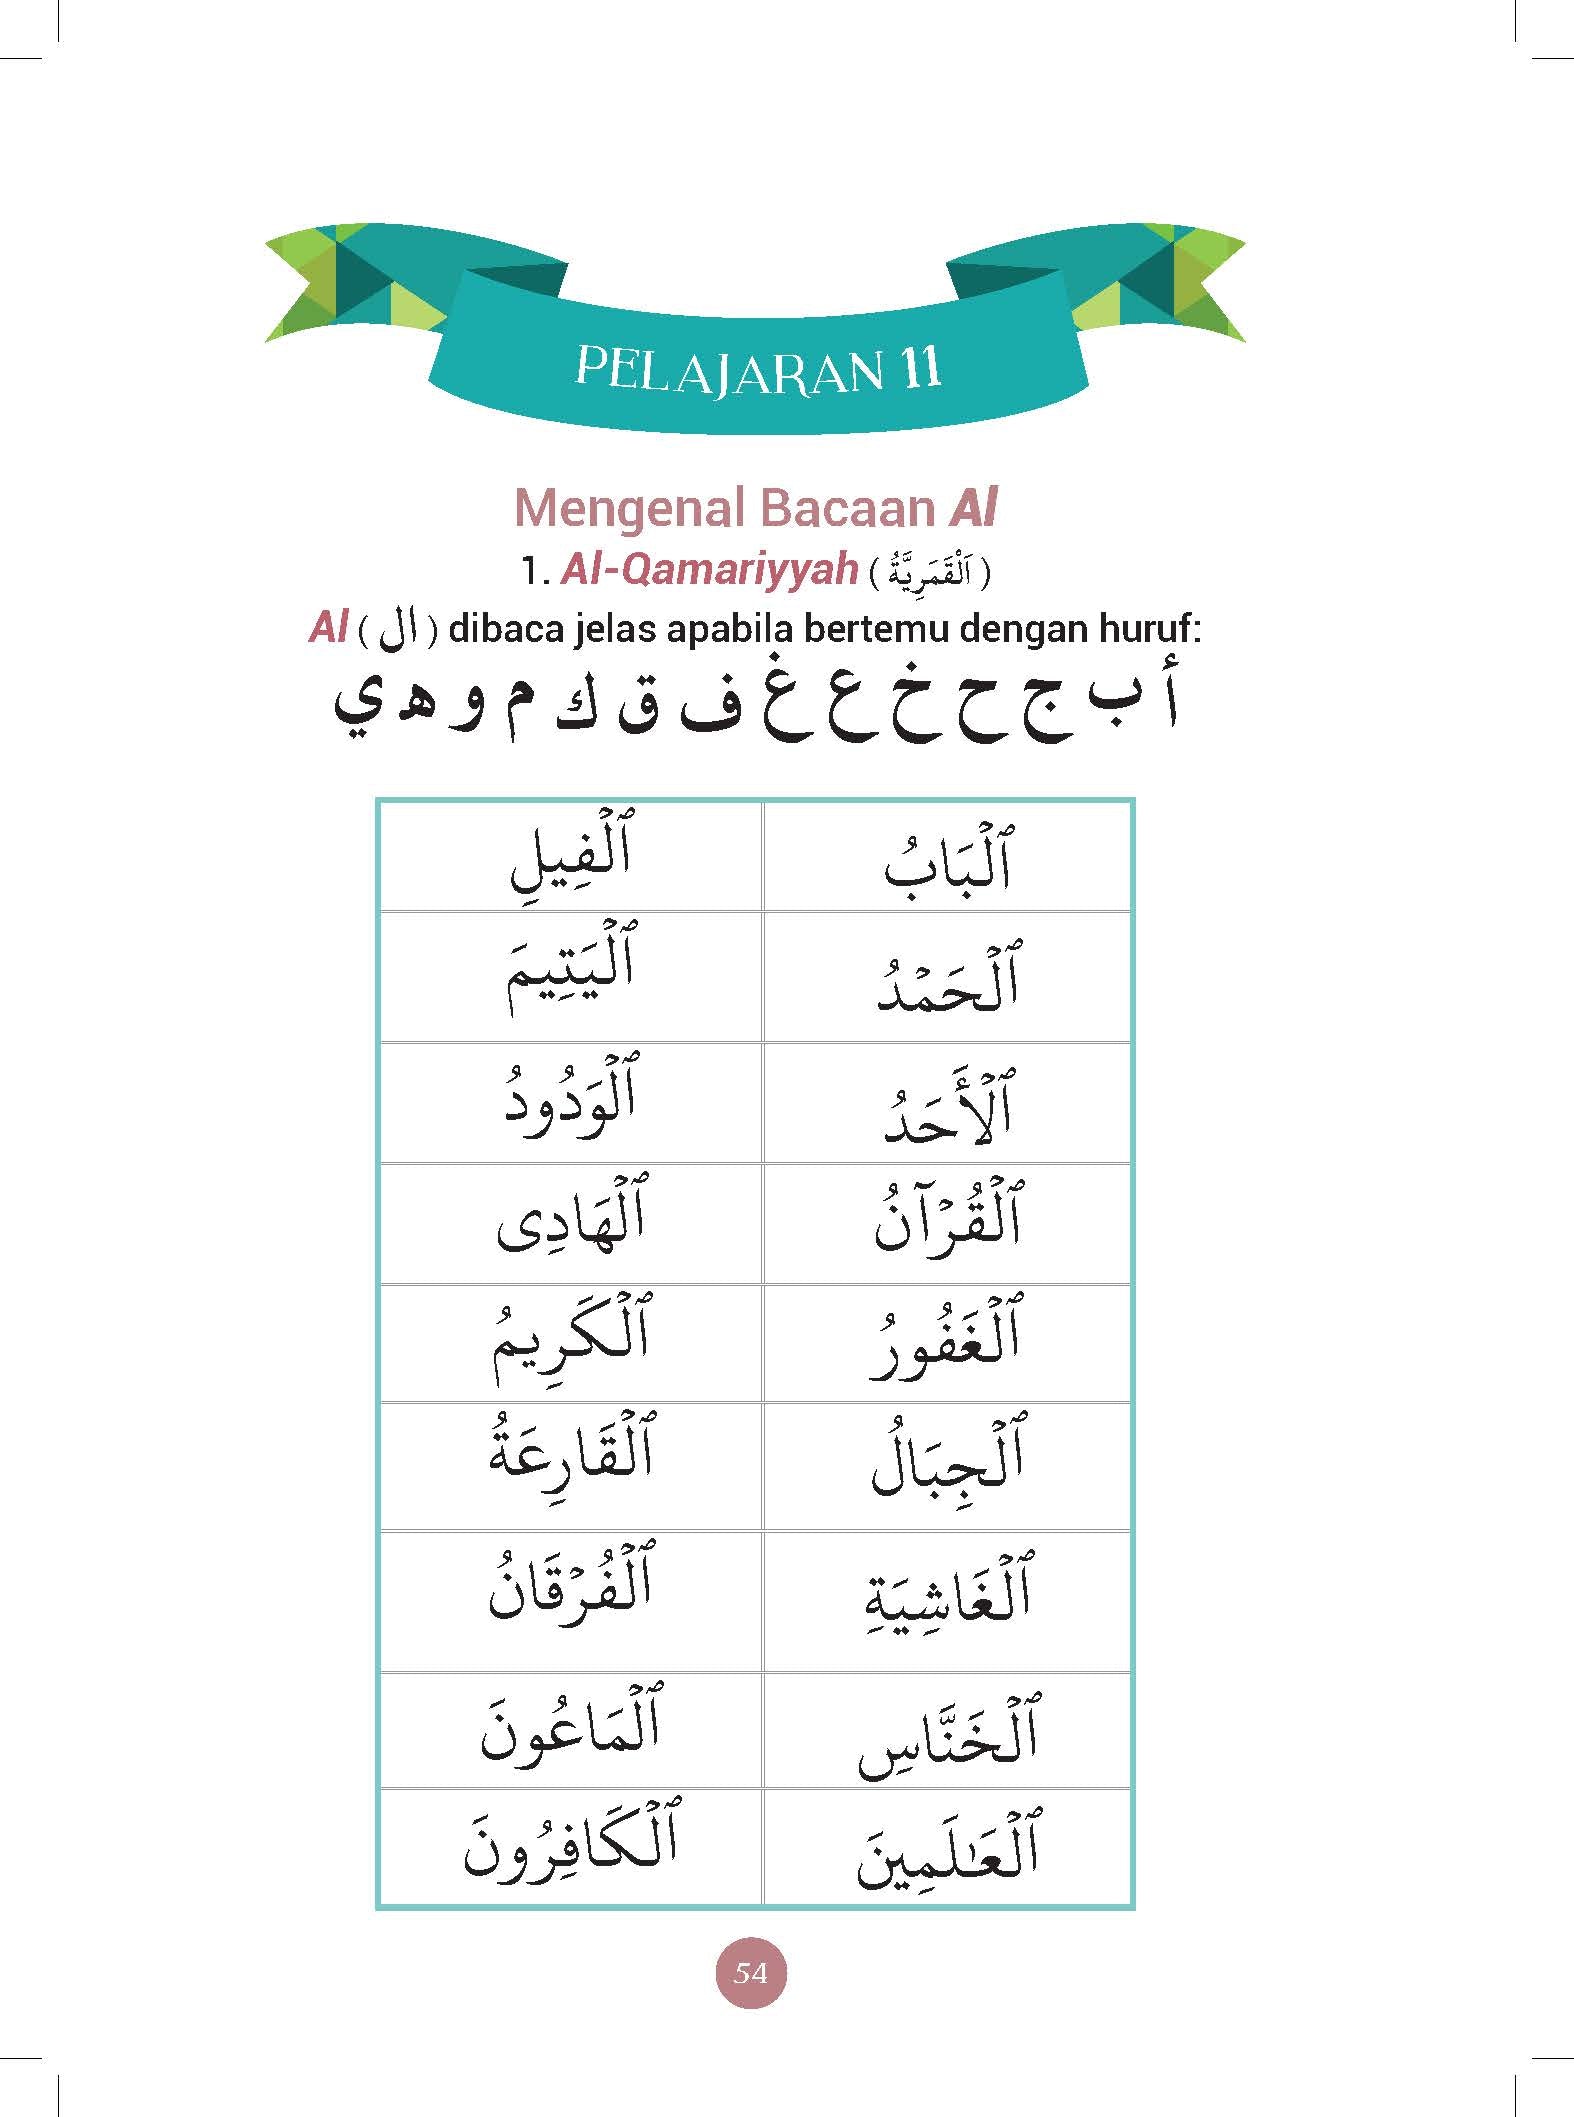 PELAJARAN 11
Mengenal Bacaan Al
1. Al-Qamariyyah ( اَلْقَمَرِيَّةُ )
Al ( ال ) dibaca jelas apabila bertemu dengan huruf:
أ ب ج ح خ ع غ ف ق ك م و ه ي
ٱلْبَابُ ٱلْفِيلِ
ٱلْحَمْدُ ٱلْيَتِيمَ
ٱلْأَحَدُ ٱلْوَدُودُ
ٱلْقُرْآنُ ٱلْهَادِى
ٱلْغَفُورُ ٱلْكَرِيمُ
ٱلْجِبَالُ ٱلْقَارِعَةُ
ٱلْغَاشِيَةِ ٱلْفُرْقَانُ
ٱلْخَنَّاسِ ٱلْمَاعُونَ
ٱلْعَـٰلَمِينَ ٱلْكَافِرُونَ
54